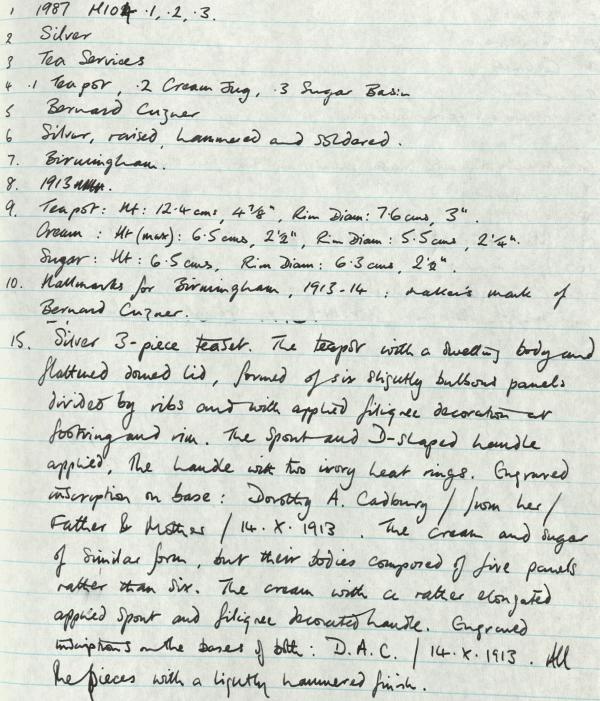 1 1987 M104 .1, .2, .3.
2 Silver
3 Tea Services
4 .1 Teapot, .2 Cream Jug, .3 Sugar Basin
5 Bernard Cuzner
6 Silver, raised, hammered and soldered.
7. Birmingham.
8. 1913.
9. Teapot: Ht: 12.4 cms, 4 7/8", Rim Diam: 7.6 cms, 3".
Cream : Ht (max): 6.5 cms, 2 1/2", Rim Diam: 5.5 cms, 2 1/4".
Sugar: Ht: 6.5 cms, Rim Diam: 6.3 cms, 2 1/2".
10. Hallmarks for Birmingham, 1913-14 : maker's mark of
Bernard Cuzner.
15. Silver 3-piece teaset. The teapot with a swelling body and
flattened domed lid, formed of six slightly bulbous panels
divided by ribs and with applied filigree decoration at
footring and rim. The spout and D-shaped handle
applied, the handle with two ivory heat rings. Engraved
inscription on base : Dorothy A. Cadbury / from her /
Father & Mother / 14.X.1913. The cream and sugar
of similar form, but their bodies composed of five panels
rather than six. The cream with a rather elongated
applied spout and filigree decorated handle. Engraved
inscriptions on the bases of both : D.A.C. / 14.X.1913. All
the pieces with a lightly hammered finish.